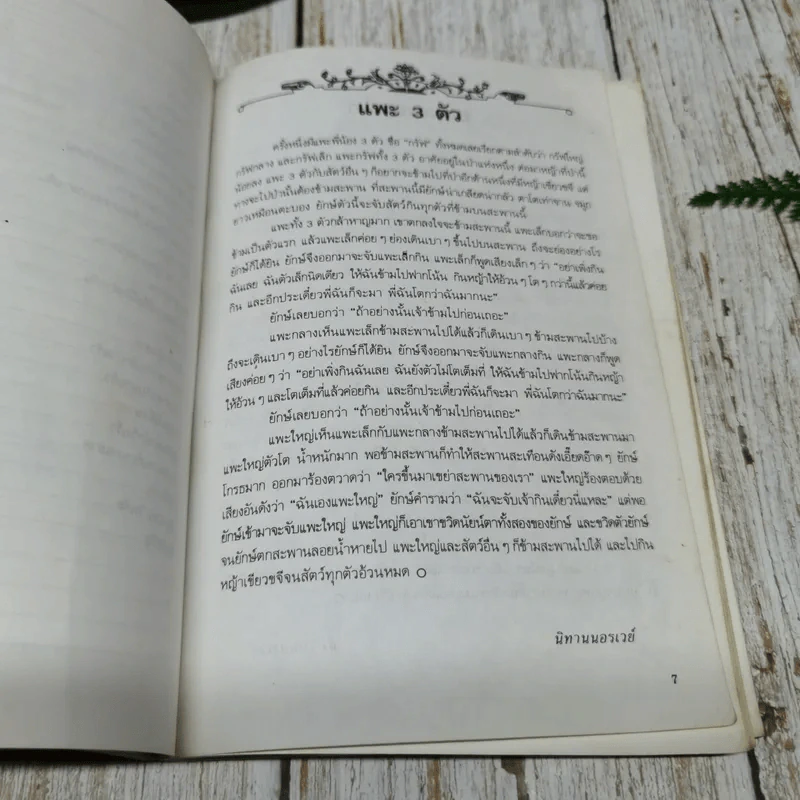 แพะ 3 ตัว
ครั้งหนึ่งมีแพะพี่น้อง 3 ตัว ชื่อ "กรัฟ" ทั้งหมดเลยเรียกตามลำดับว่า กรัฟใหญ่
กรัฟกลาง และกรัฟเล็ก แพะกรัฟทั้ง 3 ตัว อาศัยอยู่ในป่าแห่งหนึ่ง ต่อมาหญ้าที่ป่านี้
น้อยลง แพะ 3 ตัวกับสัตว์อื่น ๆ ก็อยากจะข้ามไปที่ป่าอีกด้านหนึ่งที่มีหญ้าเขียวขจี แต่
ทางจะไปป่านั้นต้องข้ามสะพาน ที่สะพานนี้มียักษ์น่าเกลียดน่ากลัว ตาโตเท่าจาน จมูก
ยาวเหมือนตะบอง ยักษ์ตัวนี้จะจับสัตว์กินทุกตัวที่ข้ามบนสะพานนี้
แพะทั้ง 3 ตัวกล้าหาญมาก เขาตกลงใจจะข้ามสะพานนี้ แพะเล็กบอกว่าจะขอ
ข้ามเป็นตัวแรก แล้วแพะเล็กค่อย ๆ ย่องเดินเบา ๆ ขึ้นไปบนสะพาน ถึงจะย่องอย่างไร
ยักษ์ก็ได้ยิน ยักษ์จึงออกมาจะจับแพะเล็กกิน แพะเล็กก็พูดเสียงเล็ก ๆ ว่า "อย่าเพิ่งกิน
ฉันเลย ฉันตัวเล็กนิดเดียว ให้ฉันข้ามไปฟากโน้น กินหญ้าให้อ้วน ๆ โต ๆ กว่านี้แล้วค่อย
กิน และอีกประเดี๋ยวพี่ฉันก็จะมา พี่ฉันโตกว่าฉันมากนะ"
ยักษ์เลยบอกว่า "ถ้าอย่างนั้นเจ้าข้ามไปก่อนเถอะ"
แพะกลางเห็นแพะเล็กข้ามสะพานไปได้แล้วก็เดินเบา ๆ ข้ามสะพานไปบ้าง
ถึงจะเดินเบา ๆ อย่างไรยักษ์ก็ได้ยิน ยักษ์จึงออกมาจะจับแพะกลางกิน แพะกลางก็พูด
เสียงค่อย ๆ ว่า "อย่าเพิ่งกินฉันเลย ฉันยังตัวไม่โตเต็มที่ ให้ฉันข้ามไปฟากโน้นกินหญ้า
ให้อ้วน ๆ และโตเต็มที่แล้วค่อยกิน และอีกประเดี๋ยวพี่ฉันก็จะมา พี่ฉันโตกว่าฉันมากนะ"
ยักษ์เลยบอกว่า "ถ้าอย่างนั้นเจ้าข้ามไปก่อนเถอะ"
แพะใหญ่เห็นแพะเล็กกับแพะกลางข้ามสะพานไปได้แล้วก็เดินข้ามสะพานมา
แพะใหญ่ตัวโต น้ำหนักมาก พอข้ามสะพานก็ทำให้สะพานสะเทือนดังเอี๊ยดอ๊าด ๆ ยักษ์
โกรธมาก ออกมาร้องตวาดว่า "ใครขึ้นมาเขย่าสะพานของเรา" แพะใหญ่ร้องตอบด้วย
เสียงอันดังว่า "ฉันเองแพะใหญ่" ยักษ์คำรามว่า "ฉันจะจับเจ้ากินเดี๋ยวนี่แหละ" แต่พอ
ยักษ์เข้ามาจะจับแพะใหญ่ แพะใหญ่ก็เอาเขาขวิดนัยน์ตาทั้งสองของยักษ์ และขวิดตัวยักษ์
จนยักษ์ตกสะพานลอยน้ำหายไป แพะใหญ่และสัตว์อื่น ๆ ก็ข้ามสะพานไปได้ และไปกิน
หญ้าเขียวขจีจนสัตว์ทุกตัวอ้วนหมด
นิทานนอรเวย์
7